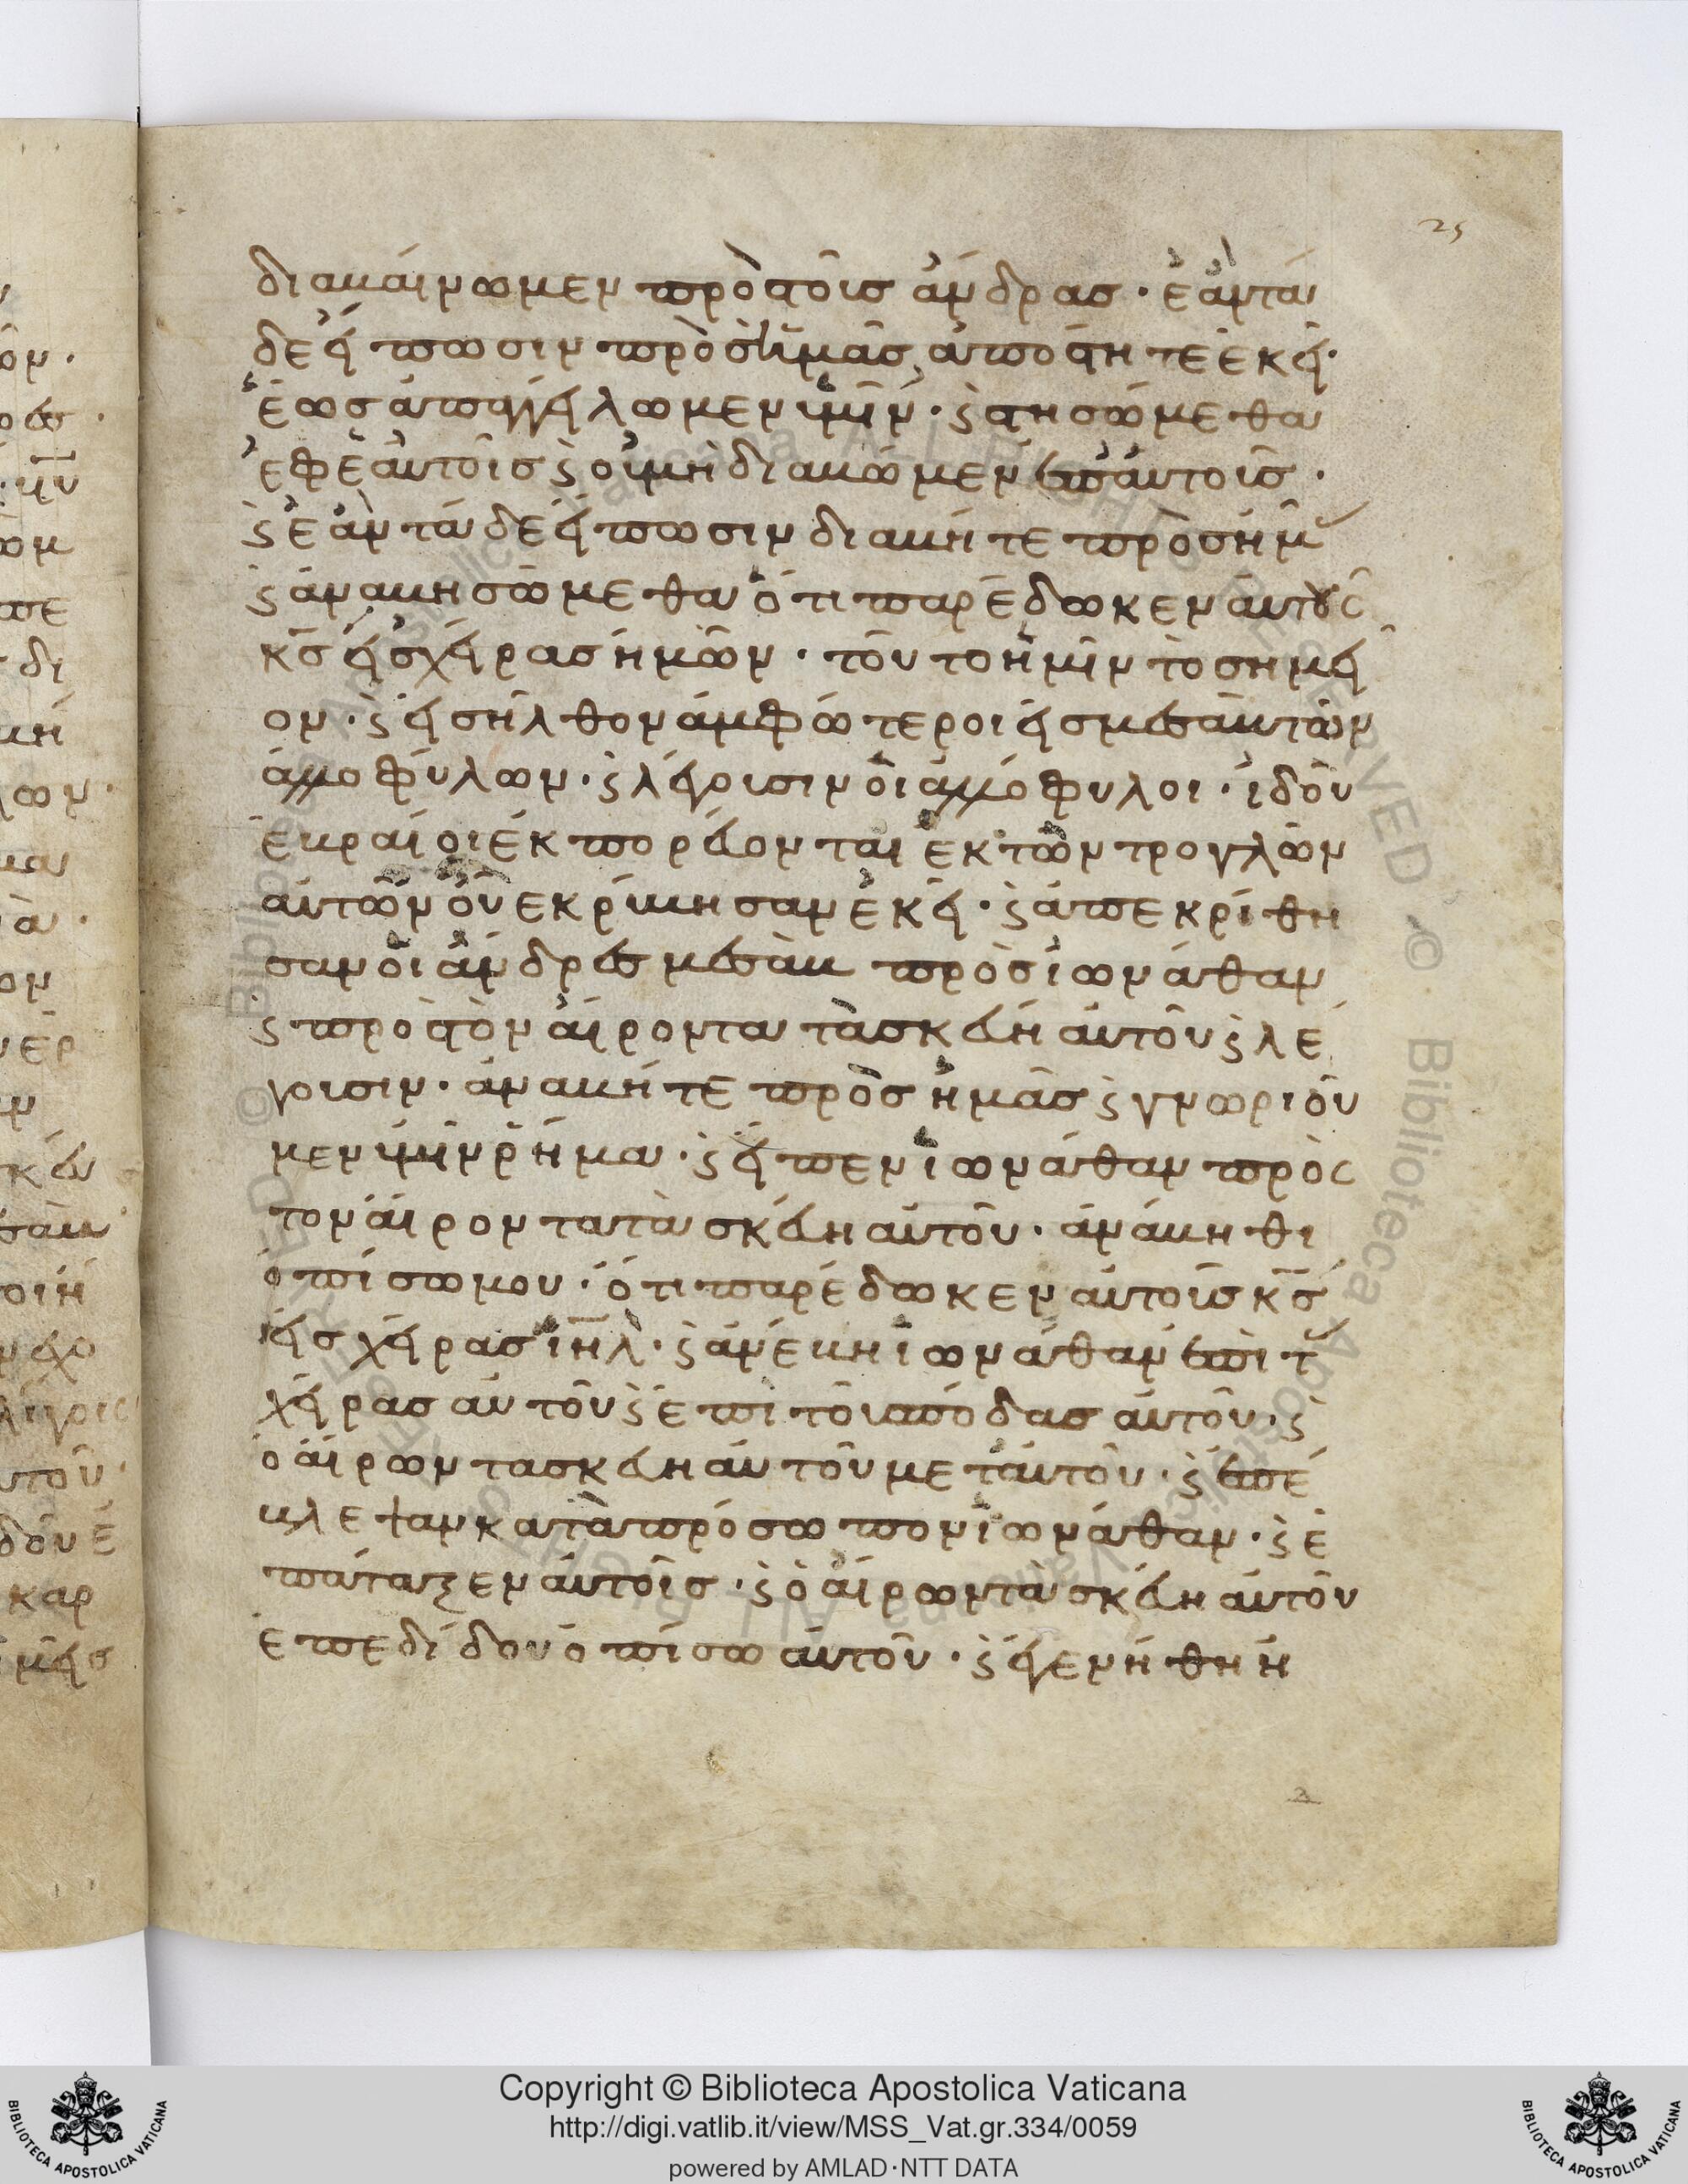 25
διαβαίνωμεν πρὸς τοὺς ἄνδρας· ἐὰν τά
δε εἴπωσιν πρὸς ἡμᾶς, ἀπόστητε ἐκεῖ·
ἕως ἀπαγγείλωμεν ὑμῖν· ϗ στησώμεθα
ἐφ ἑαυτοῖς ϗ οὐ μὴ διαβῶμεν ἐπ αὐτούς·
ϗ ἐὰν τάδε εἴπωσιν διάβητε πρὸς ἡμ
ϗ ἀναβησώμεθα ὅτι παρέδωκεν αὐτοὺς
κς εἰς χεῖρας ἡμῶν· τοῦτο ἡμῖν τὸ σημεῖ
ον· ϗ εἰσῆλθον ἀμφότεροι εἰς μεσσὰβ τῶν
ἀλλοφύλων· ϗ λέγουσιν οἱ ἀλλόφυλοι· ἰδοὺ
ἑβραῖοι ἐκπορεύονται ἐκ τῶν τρογλῶν
αὐτῶν οὗ ἐκρύβησαν ἐκεῖ· ϗ ἀπεκρίθη
σαν οἱ ἄνδρες μεσσὰβ πρὸς ἰωνάθαν
ϗ πρὸς τὸν αἴροντα τὰ σκεύη αὐτοῦ ϗ λέ
γουσιν· ἀνάβητε πρὸς ἡμᾶς ϗ γνωριοῦ
μεν ὑμῖν ῥῆμα· ϗ εἶπεν ἰωνάθαν πρὸς
τὸν αἴροντα τὰ σκεύη αὐτοῦ· ἀνάβηθι
ὀπίσω μου· ὅτι παρέδωκεν αὐτοὺς κς
εἰς χεῖρας ιηλ· ϗ ἀνέβη ἰωνάθαν ἐπὶ τ
χεῖρας αὐτοῦ ϗ ἐπὶ τοὺς πόδας αὐτοῦ· ϗ
ὁ αἴρων τὰ σκεύη αὐτοῦ μετ αὐτοῦ· ϗ ἐπέ
βλεψαν κατὰ πρόσωπον ἰωνάθαν· ϗ ἐ
πάταξεν αὐτούς· ϗ ὁ αἴρων τὰ σκεύη αὐτοῦ
ἐπεδίδου ὀπίσω αὐτοῦ· ϗ ἐγενήθη ἡ
Copyright © Biblioteca Apostolica Vaticana
http://digi.vatlib.it/view/MSS_Vat.gr.334/0059
powered by AMLAD·NTT DATA
BIBLIOTECA APOSTOLICA VATICANA
BIBLIOTECA APOSTOLICA VATICANA